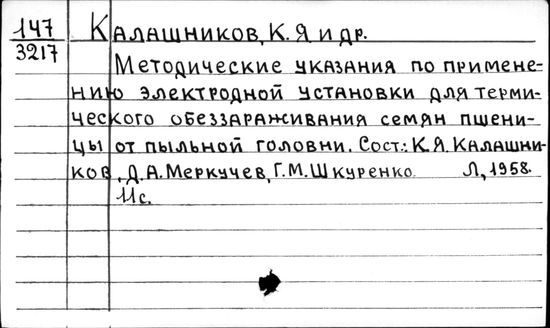 147 Калашников, К. Я и др.
3217
Методические указания по примене-
нию электродной установки для терми-
ческого обеззараживания семян пшени-
цы от пыльной головни. Сост.: К.Я. Калашни-
ков, Д.А. Меркучев, Г.М. Шкуренко. Л, 1958.
11с.